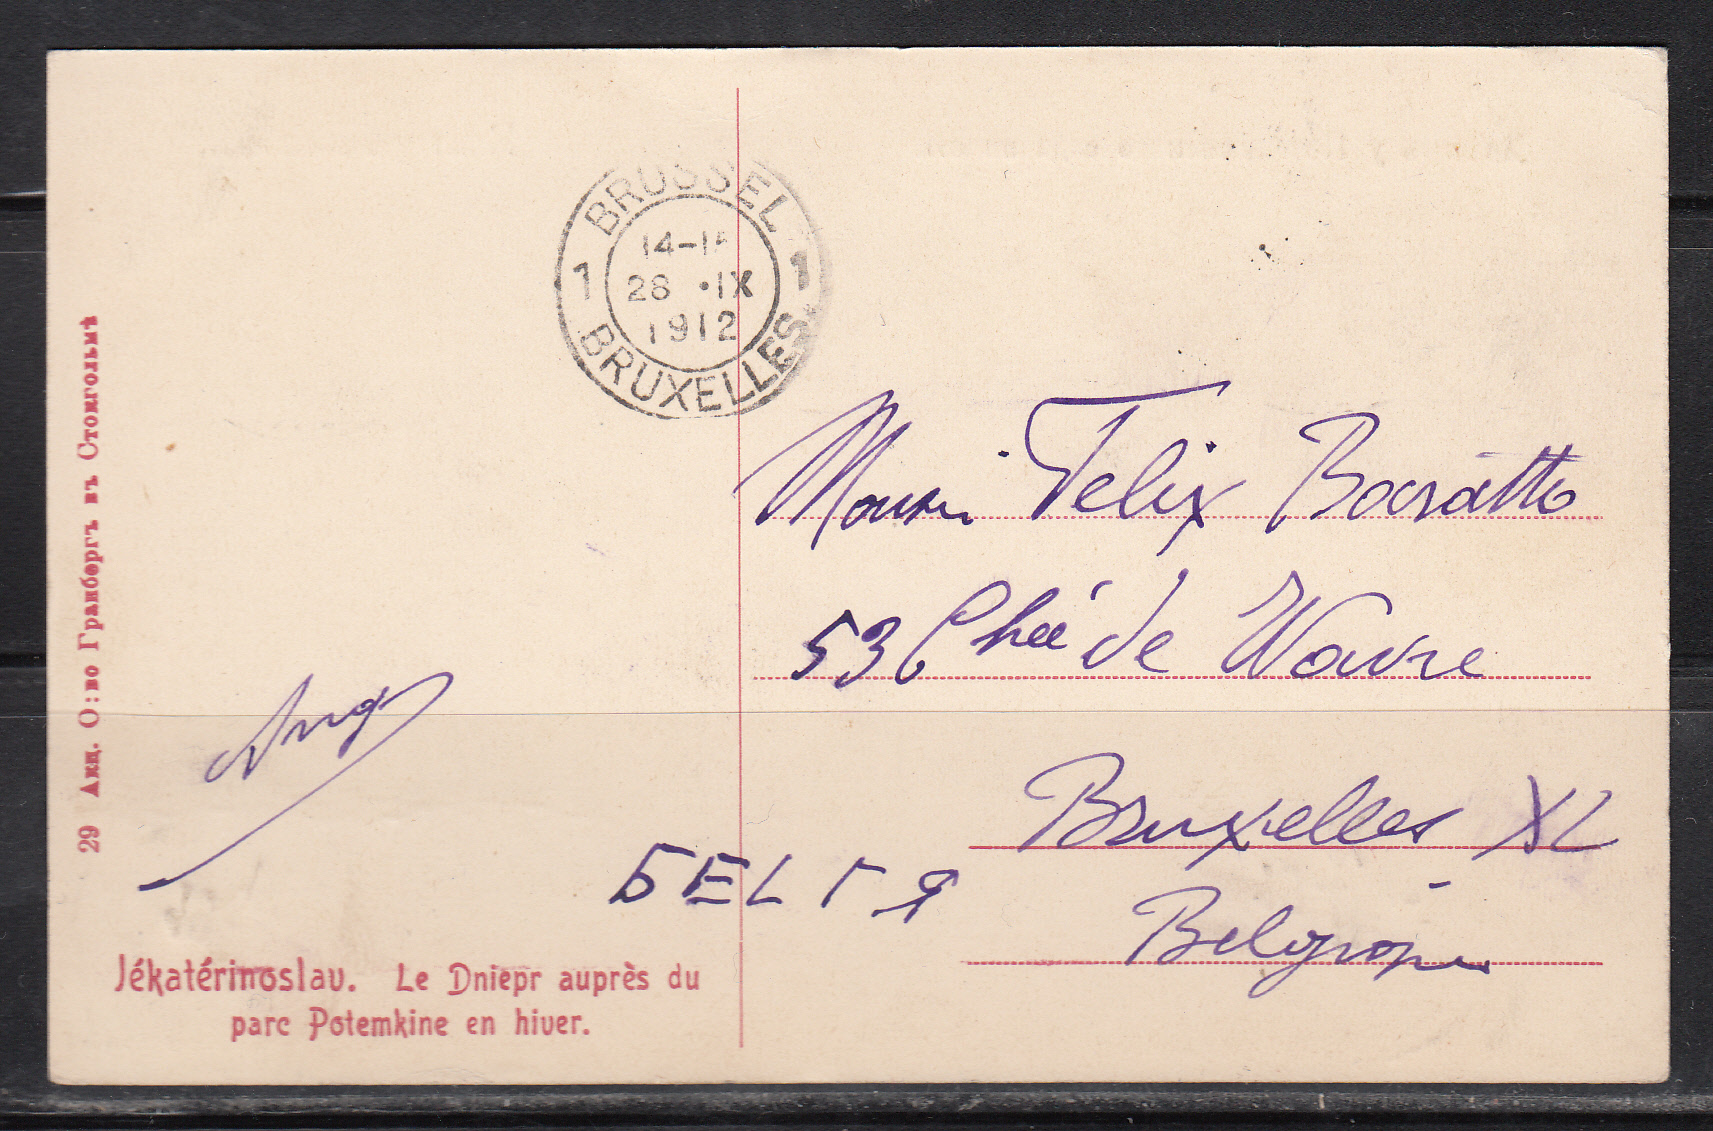 BRUSSEL
14-15
1 28 · IX 1
1912
BRUXELLES
29 Акц. О:во Гранбергъ въ Стокгольмѣ
Felix
53 Chée de Wavre
Bruxelles XL
БЕЛГЯ
Jékatérinoslav. Le Dniepr auprès du
parc Potemkine en hiver.